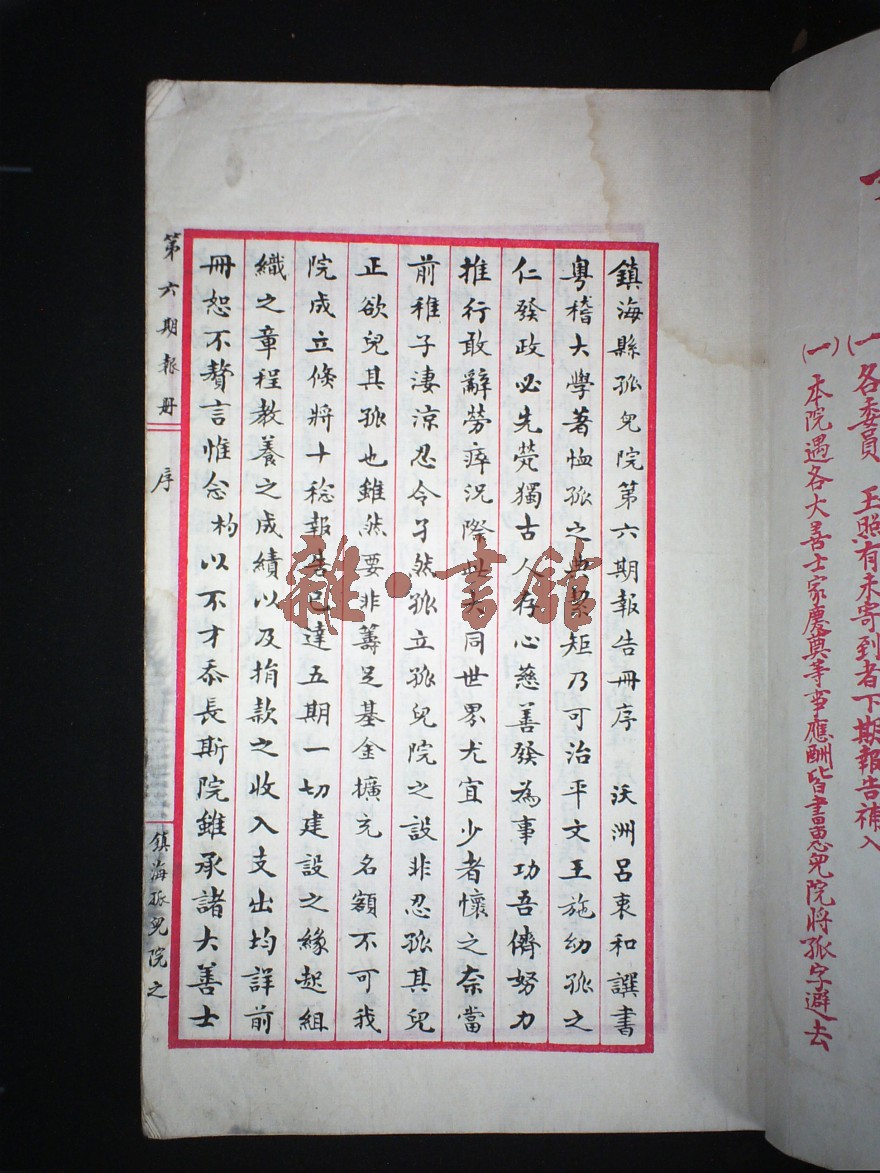 (一)各委員玉照有未寄到者下期報告補入
(一)本院遇各大善士家慶典等事應酬皆書惠兒院將孤字避去
鎮海縣孤兒院第六期報告冊序 沃洲呂衷和譔書
粵稽大學著恤孤之典絜矩乃可治平文王施幼孤之
仁發政必先煢獨古人存心慈善發為事功吾儕努力
推行敢辭勞瘁況際此大同世界尤宜少者懷之奈當
前稚子淒涼忍令孑然孤立孤兒院之設非忍孤其兒
正欲兒其孤也雖然要非籌足基金擴充名額不可我
院成立倏將十稔報告已達五期一切建設之緣起組
織之章程教養之成績以及捐款之收入支出均詳前
冊恕不贅言惟念枃以不才忝長斯院雖承諸大善士
第六期報冊 序 鎮海孤兒院之
雜·書館